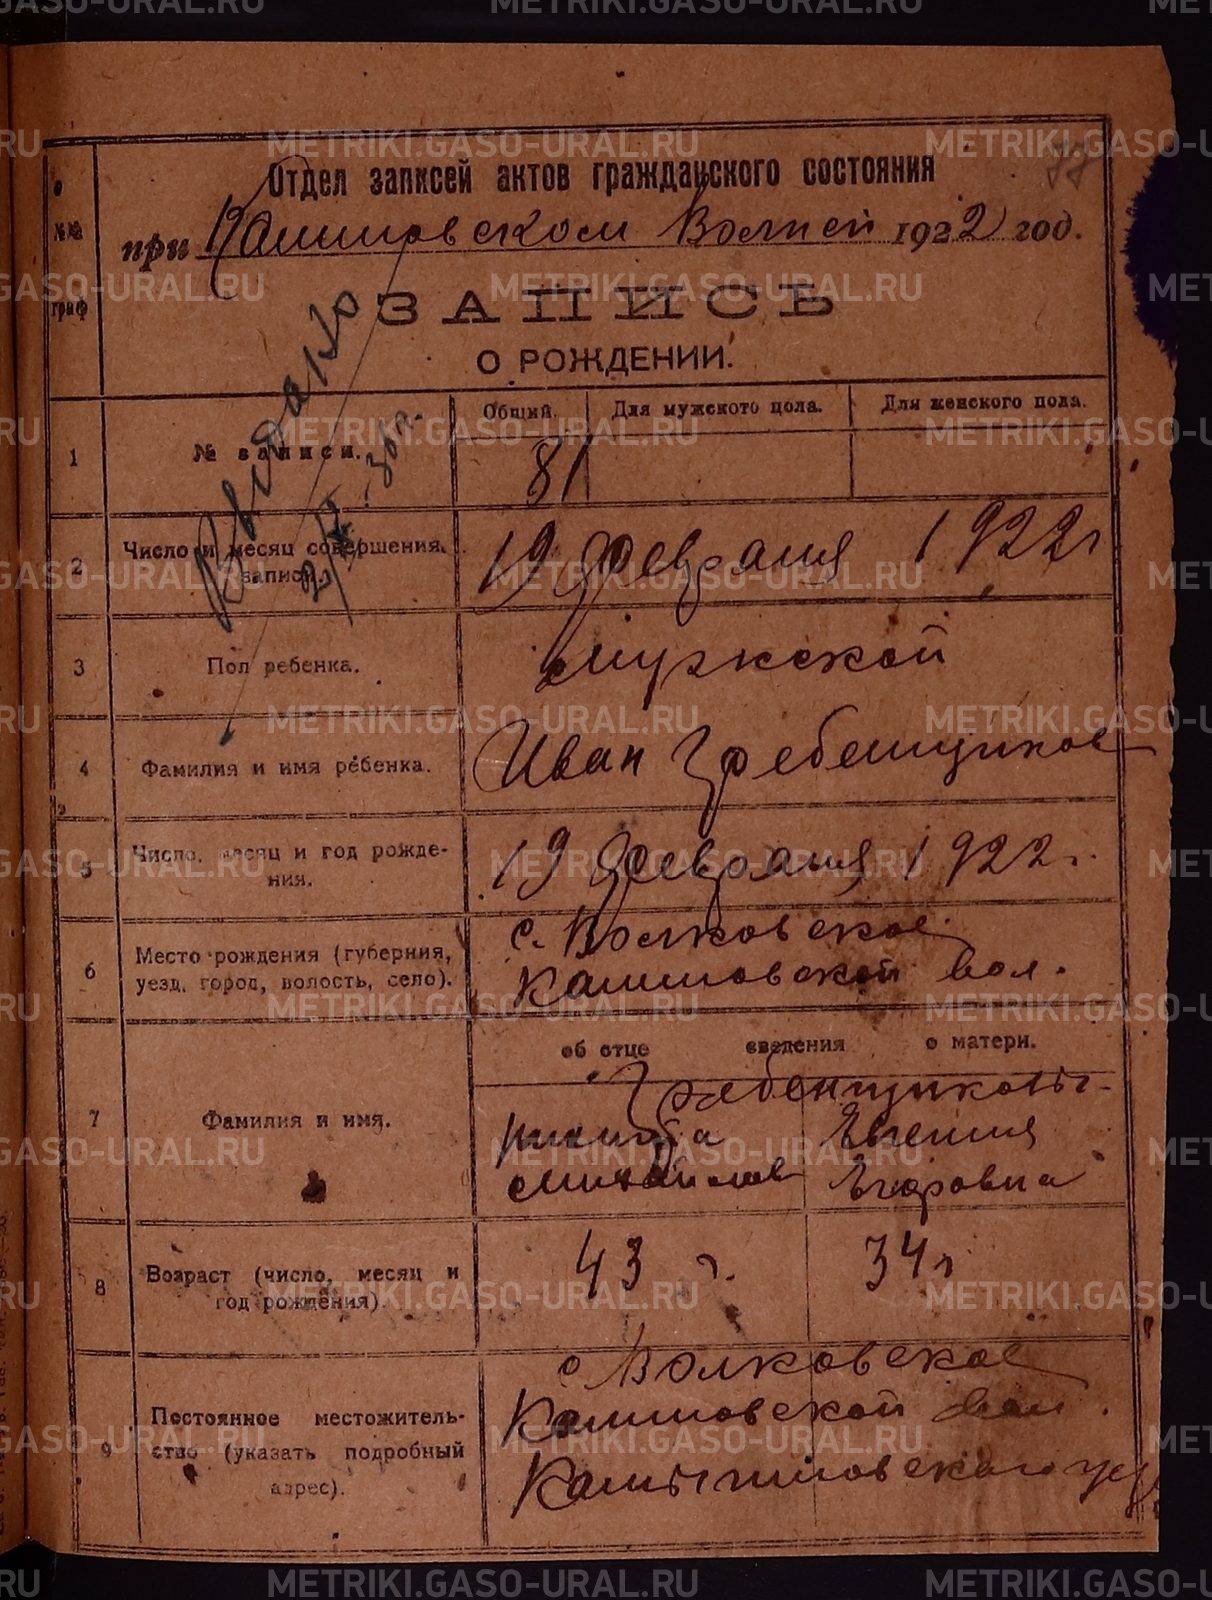 77
Отдел записей актов гражданского состояния
при Калиновском Волисп 1922 год.
№№ граф
ЗАПИСЬ
О РОЖДЕНИИ.
Общий. Для мужского пола. Для женского пола.
1 № записи. 81
2 Число и месяц совершения записи. 19 февраля 1922 г
3 Пол ребенка. мужской
4 Фамилия и имя ребенка. Иван Гребенщиков
5 Число, месяц и год рождения. 19 февраля 1922 г.
6 Место рождения (губерния, уезд, город, волость, село). с. Волковское
Калиновской вол.
об отце сведения о матери.
Гребенщиковы
7 Фамилия и имя. Никита Евгения
Михайлов Егоровна
8 Возраст (число, месяц и год рождения). 43 г. 34 г
9 Постоянное местожительство (указать подробный адрес). с Волковское
Калиновской вол.
Камышловского уез
METRIKI.GASO-URAL.RU